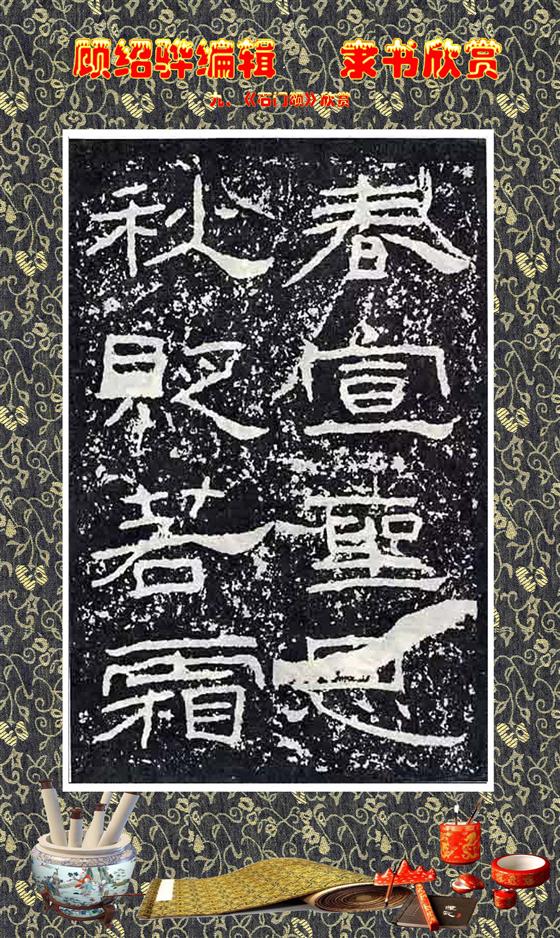 顾绍骅编辑 隶书欣赏
九、《石门颂》欣赏
春宣聖恩
秋貶若霜